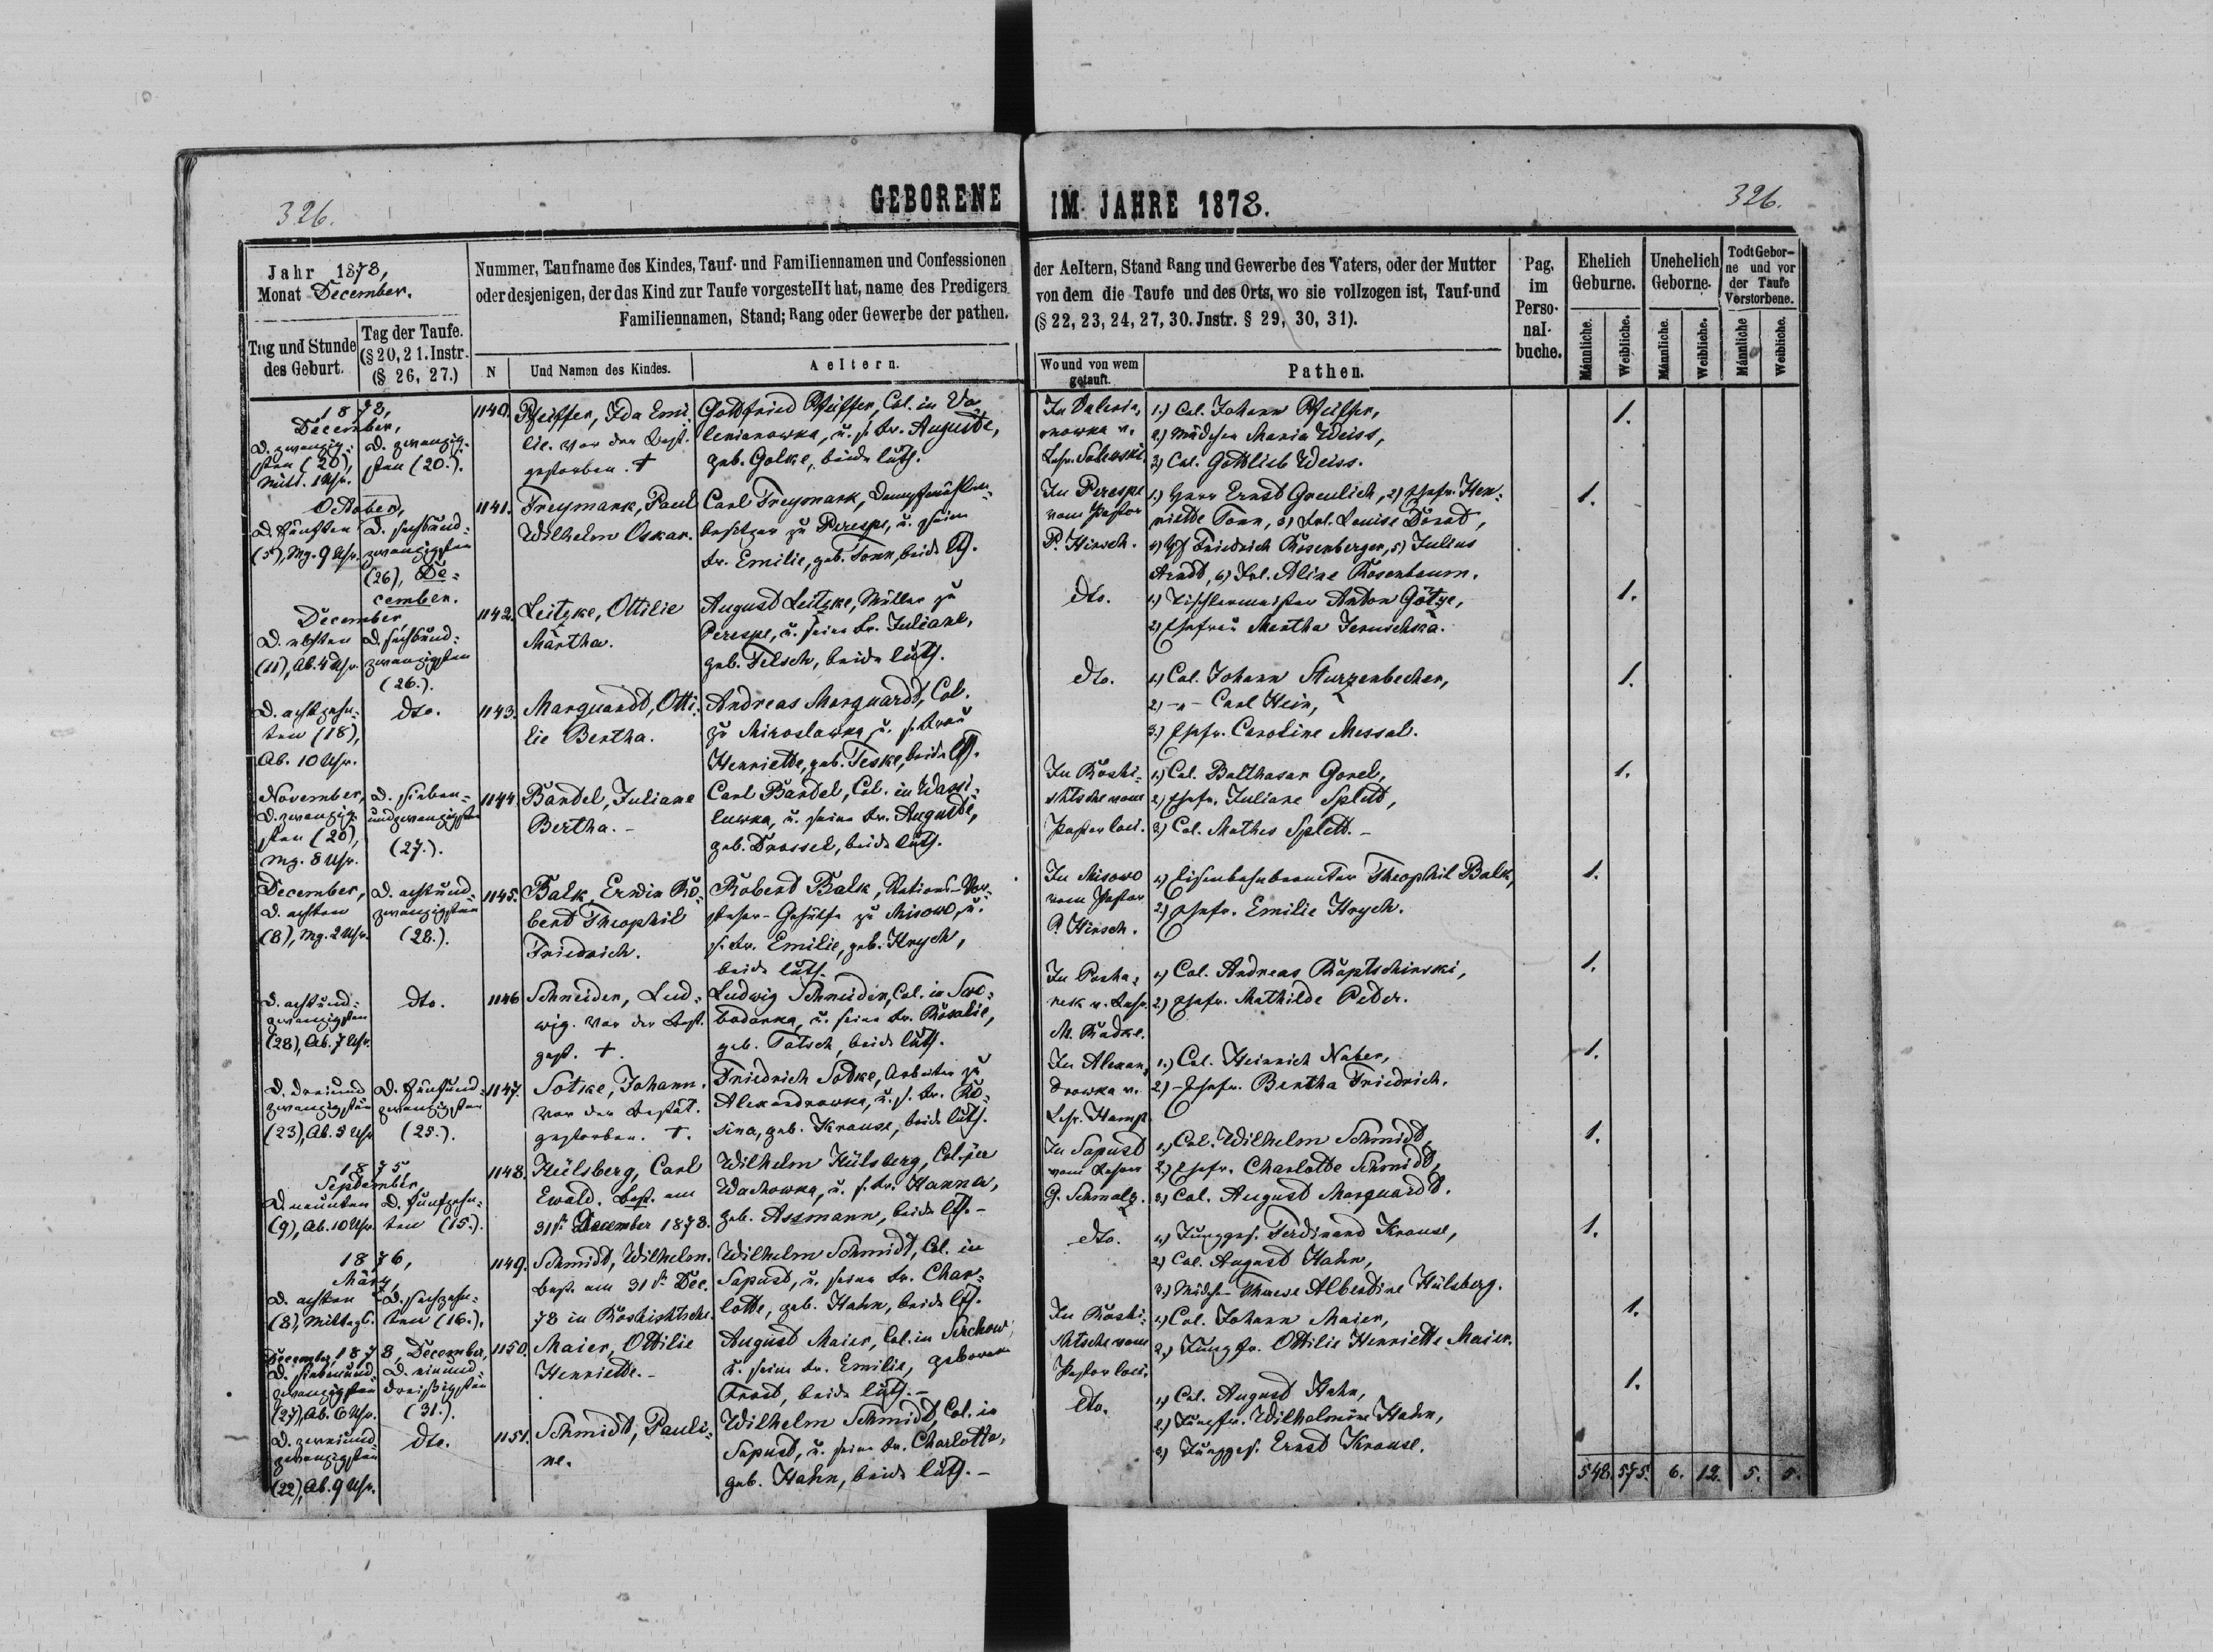 326.
GEBORENE IM JAHRE 1878.
326.
Jahr 1878,
Monat December.
Tag und Stunde des Geburt.
Tag der Taufe. (§ 20, 21. Instr. (§ 26, 27.)
Nummer, Taufname des Kindes, Tauf- und Familiennamen und Confessionen
oder desjenigen, der das Kind zur Taufe vorgestellt hat, name des Predigers
Familiennamen, Stand; Rang oder Gewerbe der pathen.
N
Und Namen des Kindes.
Aeltern.
der Aeltern, Stand Rang und Gewerbe des Vaters, oder der Mutter
von dem die Taufe und des Orts, wo sie vollzogen ist, Tauf-und
(§ 22, 23, 24, 27, 30. Jnstr. § 29, 30, 31).
Wo und von wem getauft.
Pathen.
Pag. im Perso- nal- buche.
Ehelich Geburne.
Unehelich Geborne.
Todt Gebor- ne und vor der Taufe Verstorbene.
Männliche.
Weibliche.
Männliche.
Weibliche.
Männliche
Weibliche.
1878,
December,
D. zwanzig- sten (20), Mitt. 1 Uhr.
D. zwanzig- sten (20.).
1140.
Pfeiffer, Ida Emi-
lie. Vor der Best.
gestorben. †
Gottfried Pfeiffer, Col. in Va-
lerianowka, u. s. Fr. Auguste,
geb. Golke, beide luth.
In Valeria-
nowka v.
Lehr. Salewski.
1.) Col. Johann Pfeiffer,
2.) Mädchen Maria Weiss,
3.) Col. Gottlieb Weiss.
1.
October,
D. fünften (5), Mg. 9 Uhr.
D. sechsund- zwanzigsten (26), De- cember.
1141.
Freymark, Paul
Wilhelm Oskar.
Carl Freymark, Dampfmühlen-
besitzer zu Perespe, u. seine
Fr. Emilie, geb. Tonn, beide lth.
In Perespe
vom Pastor
P. Hirsch.
1.) Herr Ernst Greulich, 2) Ehefr. Hen-
riette Tonn, 3) Frl. Louise Dorst,
4) H. Friedrich Rosenberger, 5) Julius
Arndt, 6) Frl. Aline Rosenbaum.
1.
December
D. elften (11), Ab. 4 Uhr.
D. sechsund- zwanzigsten (26.).
1142.
Leitzke, Ottilie
Martha.
August Leitzke, Müller zu
Perespe, u. seine Fr. Juliane,
geb. Felsch, beide luth.
dto.
1.) Tischlermeister Anton Götze,
2.) Ehefrau Martha Jeruschka.
1.
D. achtzehn- ten (18), Ab. 10 Uhr.
dto.
1143.
Marquardt, Otti-
lie Bertha.
Andreas Marquardt, Col.
zu Miroslawka, u. s. Frau
Henriette, geb. Teske, beide lth.
dto.
1.) Col. Johann Sturzenbecher,
2) -"- Carl Hein,
3.) Ehefr. Caroline Messal.
1.
November, D. zwanzig- sten (20), Mg. 8 Uhr.
D. sieben- undzwanzigsten (27.).
1144.
Bandel, Juliane
Bertha. -
Carl Bandel, Col. in Wassi-
luwka, u. seine Fr. Auguste,
geb. Drossel, beide luth.
In Roshi-
schtsche vom
Pastor loci.
1.) Col. Balthasar Gorel,
2) Ehefr. Juliane Splett,
3) Col. Mathes Splett. -
1.
December, D. achten (8), Mg. 2 Uhr.
D. achtund- zwanzigsten (28.).
1145.
Balk, Erwin Ro-
bert Theophil
Friedrich.
Robert Balk, Stations-Vor-
steher-Gehülfe zu Misowo, u.
s. Fr. Emilie, geb. Hrych,
beide luth.
In Misowo
vom Pastor
P. Hirsch.
1.) Eisenbahnbeamter Theophil Balk,
2.) Ehefr. Emilie Hrych.
1.
D. achtund- zwanzigsten (28), Ab. 7 Uhr.
dto.
1146.
Schneider, Lud-
wig. Vor der Best.
gest. †.
Ludwig Schneider, Col. in Swo-
bodarka, u. seine Fr. Rosalie,
geb. Tatsch, beide luth.
v. Lehr.
M. Radke.
1.) Col. Andreas Raptschinski,
2.) Ehefr. Mathilde Peter.
1.
D. dreiund- zwanzigsten (23), Ab. 5 Uhr.
D. fünfund- zwanzigsten (25.).
1147.
Sotke, Johann.
Vor der Bestät.
gestorben. †.
Friedrich Sotke, Arbeiter zu
Alexandrowka, u. s. Fr. Ro-
sina, geb. Krause, beide luth.
In Alexan-
drowka v.
Lehr. Hamp.
1.) Col. Heinrich Naber,
2.) - Ehefr. Bertha Friedrich.
1.
1875,
September,
D. neunten (9), Ab. 10 Uhr.
D. fünfzehn- ten (15.).
1148.
Hülsberg, Carl
Ewald. Best. am
31st. December 1878.
Wilhelm Hülsberg, Col. zu
Wachowka, u. s. Fr. Hanna,
geb. Assmann, beide lth. -
In Sapust
vom Lehrer
G. Schmalz.
1.) Col. Wilhelm Schmidt,
2.) Ehefr. Charlotte Schmidt,
3.) Col. August Marquardt.
1.
1876,
März
D. achten (8), Mittags.
D. sechzehn- ten (16.).
1149.
Schmidt, Wilhelm.
Best. am 31st. Dec.
78 in Roshischtsche.
Wilhelm Schmidt, Col. in
Sapust, u. seine Fr. Char-
lotte, geb. Hahn, beide lth.
dto.
1.) Jungges. Ferdinand Krause,
2.) Col. August Hahn,
3.) Mädch. Therese Albertine Hülsberg.
1.
December, 1878, December,
D. siebenund- zwanzigsten (27), Ab. 6 Uhr.
D. einund- dreißigsten (31.).
1150.
Maier, Ottilie
Henriette. -
August Maier, Col. in Serchow,
u. seine Fr. Emilie, geborene
Frost, beide luth. -
In Roshi-
schtsche vom
Pastor loci.
1.) Col. Johann Maier,
2.) Jungfr. Ottilie Henriette Maier.
1.
D. zweiund- zwanzigsten (22), Ab. 9 Uhr.
dto.
1151.
Schmidt, Pauli-
ne.
Wilhelm Schmidt, Col. in
Sapust, u. seine Fr. Charlotte,
geb. Hahn, beide luth. -
dto.
1.) Col. August Hahn,
2.) Jungfr. Wilhelmine Hahn,
3.) Jungges. Ernst Krause.
1.
548. 575. 6. 12. 5. 5.